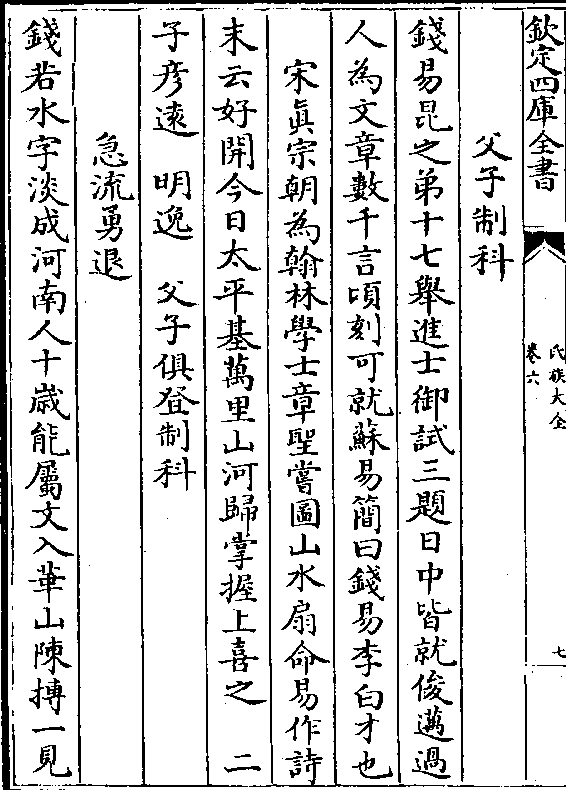 欽定四庫全書
氏族大全
卷六
七
父子制科
錢易昆之弟十七舉進士御試三題日中皆就俊邁過
人為文章數千言頃刻可就蘇易簡曰錢易李白才也
宋真宗朝為翰林學士章聖嘗圖山水扇命易作詩
末云好開今日太平基萬里山河歸掌握上喜之 二
子彦遠 明逸 父子俱登制科
急流勇退
錢若水字淡成河南人十歲能屬文入華山陳摶一見